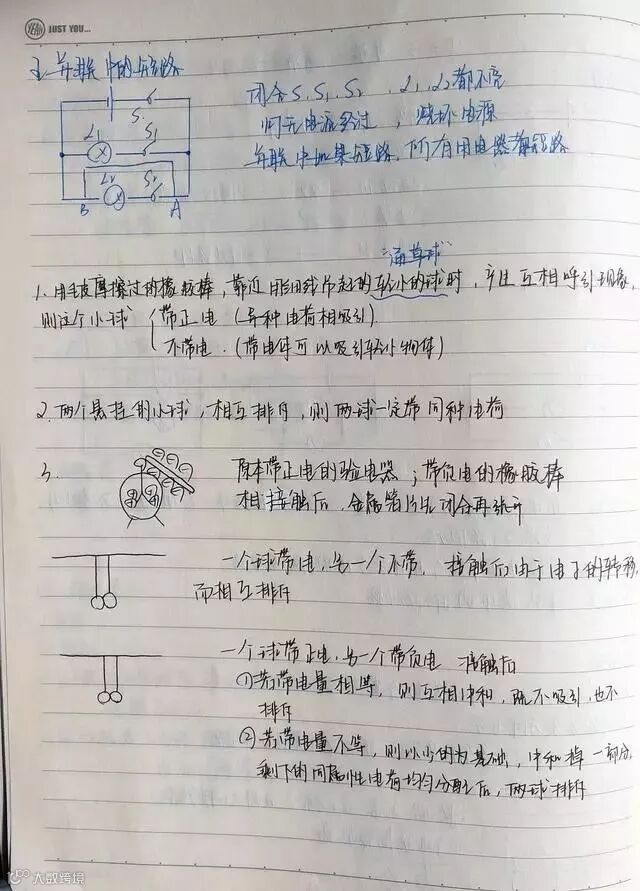 YEAH JUST YOU...
并联中的短路
闭合S、S₁、S₂ L₁、L₂都不亮
灯无电流经过，烧坏电源
并联中如果短路，所有用电器都短路
S
L₁ S₁
L₂ S₂
B A
"通草球"
1. 用毛皮摩擦过的橡胶棒，靠近用细线吊起的轻小的球时，产生互相吸引现象，
则这个小球 带正电（异种电荷相吸引）
不带电.（带电体可以吸引轻小物体）
2. 两个悬挂的小球，相互排斥，则两球一定带同种电荷
3. 原本带正电的验电器；带负电的橡胶棒
相接触后，金属箔片先闭合再张开
一个球带电，另一个不带，接触后由于电子的转移，
而相互排斥
一个球带正电，另一个带负电 接触后
①若带电量相等，则互相中和，既不吸引，也不
排斥
②若带电量不等，则以少的为基础，中和掉一部分，
剩下的同属性电荷均匀分配后，两球排斥
大数跨境